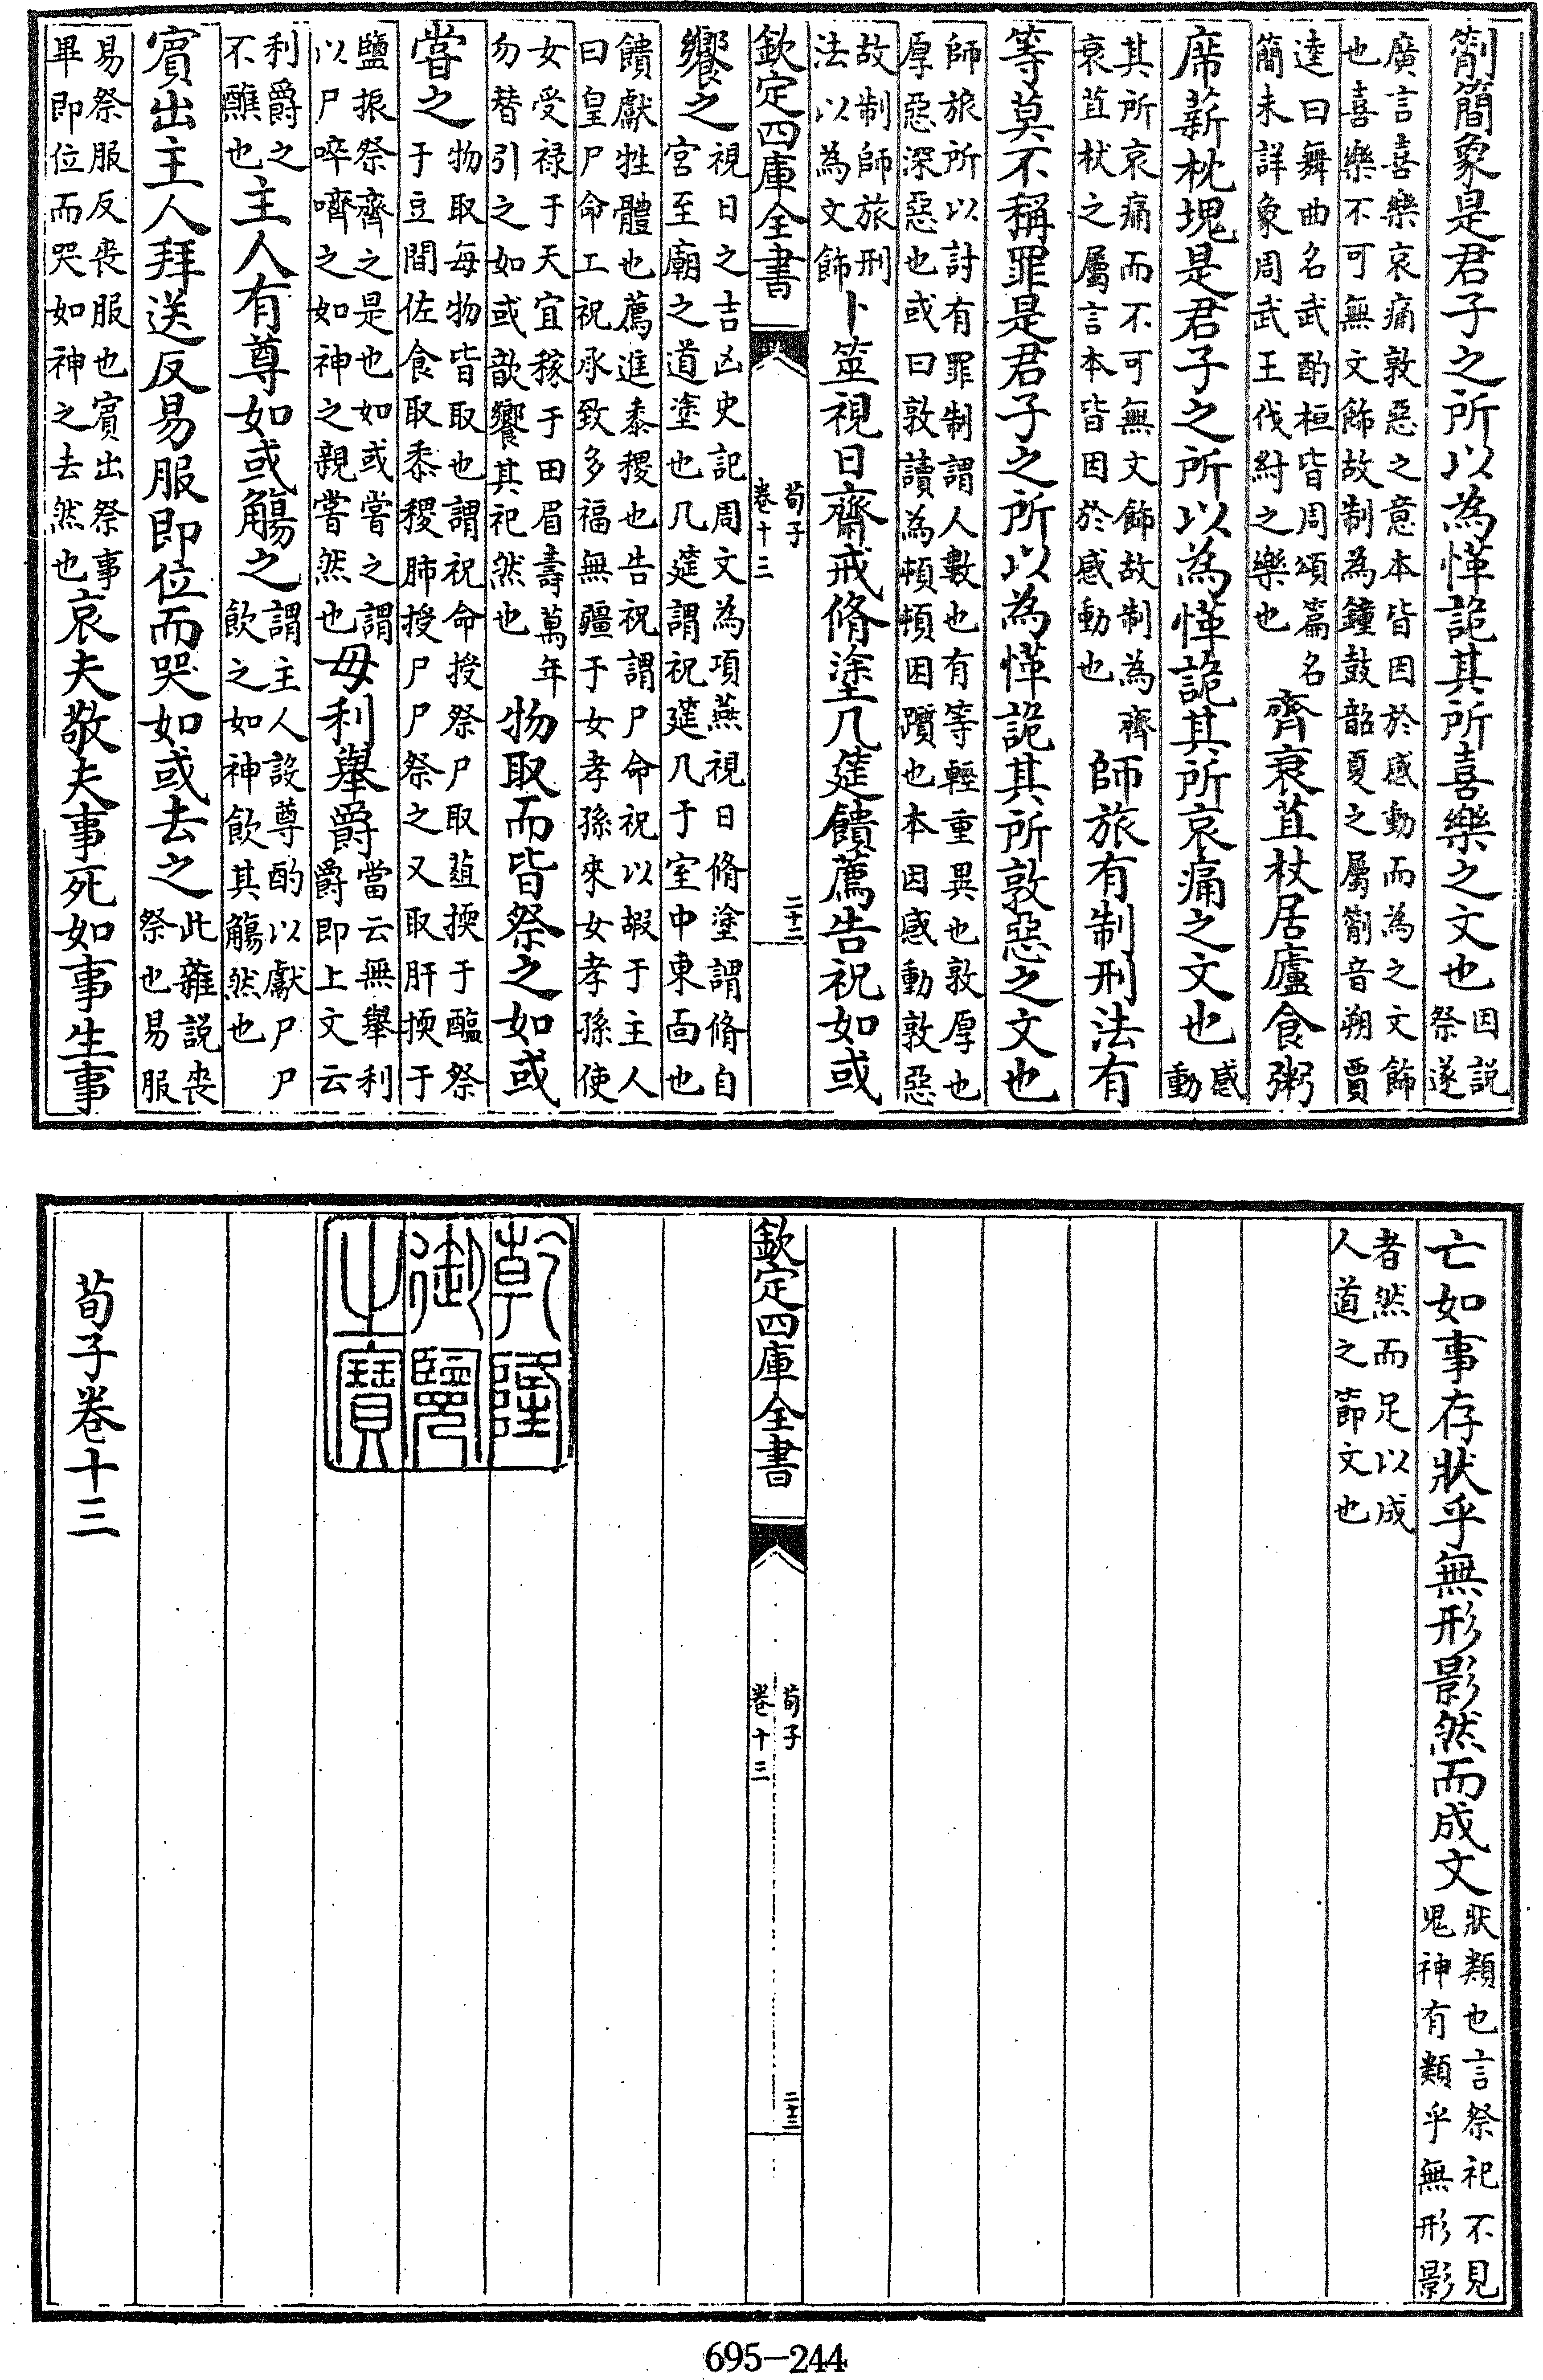 箾簡象是君子之所以為愅詭其所喜樂之文也因説祭遂
廣言喜樂哀痛敦惡之意本皆因於感動而為之文飾
也喜樂不可無文飾故制為鐘鼓韶夏之屬箾音朔賈
逵曰舞曲名武酌桓皆周頌篇名
簡未詳象周武王伐紂之樂也
齊衰苴杖居廬食粥
席薪枕塊是君子之所以為愅詭其所哀痛之文也感動
其所哀痛而不可無文飾故制為齊
衰苴杖之屬言本皆因於感動也
師旅有制刑法有
等莫不稱罪是君子之所以為愅詭其所敦惡之文也
師旅所以討有罪制謂人數也有等輕重異也敦厚也
厚惡深惡也或曰敦讀為頓頓困躓也本因感動敦惡
故制師旅刑
法以為文飾
卜筮視日齋戒脩塗几筵饋薦告祝如或
欽定四庫全書
荀子
卷十三
二十二
饗之
視日之吉凶史記周文為項燕視日脩塗謂脩自
宮至廟之道塗也几筵謂祝筵几于室中東面也
饋獻牲體也薦進黍稷也告祝謂尸命祝以嘏于主人
曰皇尸命工祝承致多福無疆于女孝孫來女孝孫使
女受禄于天宜稼于田眉壽萬年
勿替引之如或歆饗其祀然也
物取而皆祭之如或
嘗之
物取每物皆取也謂祝命授祭尸取菹擩于醢祭
于豆間佐食取黍稷肺授尸尸祭之又取肝擩于
鹽振祭齊之是也如或嘗之謂
以尸啐嚌之如神之親嘗然也
毋利舉爵
當云無舉利
爵即上文云
利爵之
不醮也
主人有尊如或觴之
謂主人設尊酌以獻尸尸
飲之如神飲其觴然也
賓出主人拜送反易服即位而哭如或去之
此雜説喪
祭也易服
易祭服反喪服也賓出祭事
畢即位而哭如神之去然也
哀夫敬夫事死如事生事
亡如事存狀乎無形影然而成文
狀類也言祭祀不見
鬼神有類乎無形影
者然而足以成
人道之節文也
欽定四庫全書
荀子
卷十三
二十三
乾隆
御覽
之寶
荀子卷十三
695-244